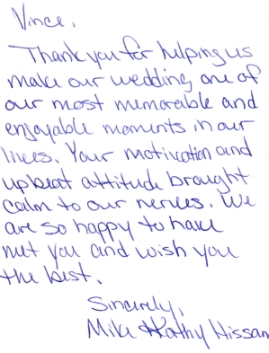 Vince,
Thank you for helping us
make our wedding one of
our most memorable and
enjoyable moments in our
lives. Your motivation and
upbeat attitude brought
calm to our nerves. We
are so happy to have
met you and wish you
the best.
Sincerely,
Mike & Kathy Hissam